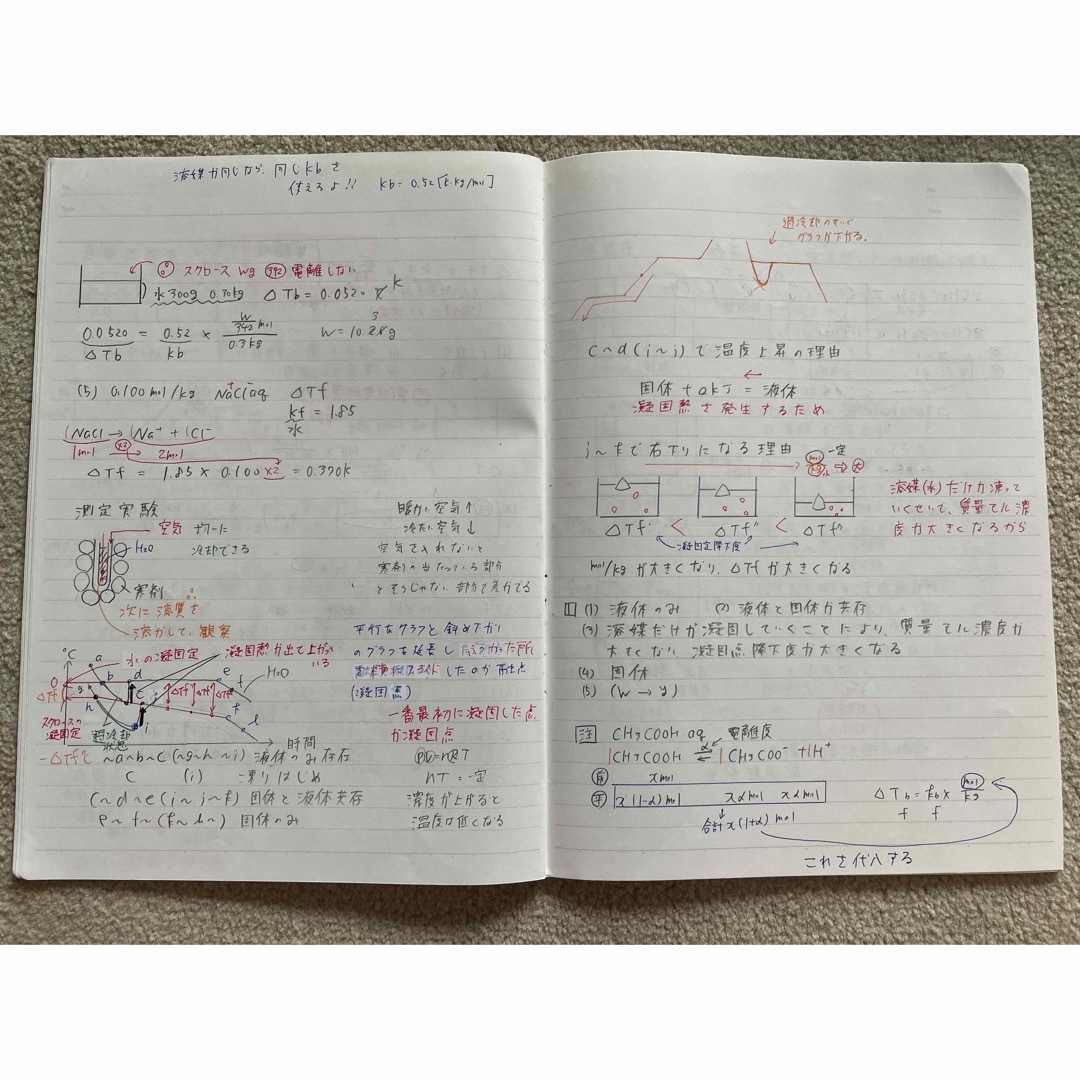 溶媒が同じなら、同じkbを
使えるよ!! kb = 0.52 [K・kg/mol]
スクロース Wg 342 電離しない
水300g 0.30kg △Tb = 0.0520 K
0.0520 = 0.52 × W/342 mol / 0.3kg W = 10.3g
△Tb kb
(5) 0.100mol/kg NaClaq △Tf
kf = 1.85
水
1NaCl → 1Na⁺ + 1Cl⁻
1mol ×2 2mol
△Tf = 1.85 × 0.100 ×2 = 0.370k
測定実験
空気 ゆっくりに
H2O 冷却できる
寒剤
次に溶質を
溶かして、観察
暖かい空気↑
冷たい空気↓
空気で入れないと
寒剤の当たっている部分
とそうじゃない部分で差がでる
°C
水の凝固定
凝固熱が出て上がっている
a
b
d
e
f
H2O
0
△Tf
g
h
c
i
l
スクロースの凝固定
過冷却状態
時間
平行なグラフと斜め下がり
のグラフを延長し
したのが再出点
(凝固点)
一番最初に凝固した点
が凝固点
-△Tf℃ ~a~b~c (~g~h~i) 液体のみ存在
c (i) 凍りはじめ
c~d~e (i~j~k) 固体と液体共存
e~f~ (k~l~) 固体のみ
PV=nRT
nT = 一定
濃度が上がると
温度は低くなる
過冷却のせいで
グラフが下がる。
c~d (i~j) で温度上昇の理由
固体 + QkJ = 液体
凝固熱を発生するため
j~kで右下りになる理由
mol/kg 一定 ⇒ 大
△Tf' < △Tf'' < △Tf'''
凝固定降下度
溶媒(水)だけが凍って
いくせいで、質量モル濃
度が大きくなるから
mol/kgが大きくなり、△Tfが大きくなる
1 (1) 液体のみ (2) 液体と固体が共存
(3) 溶媒だけが凝固していくことにより、質量モル濃度が
大きくなり 凝固点降下度が大きくなる
(4) 固体
(5) (W → y)
注 CH3COOH aq 電離度
1CH3COOH ⇄ α 1CH3COO⁻ + 1H⁺
前 x mol
平 x(1-α) mol xα mol xα mol
合計 x(1+α) mol
△Tb = kb × mol/kg
f f
これを代入する